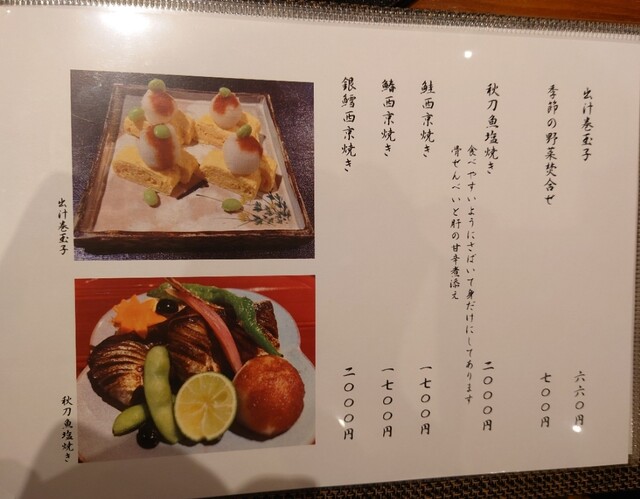 出汁巻玉子 六六〇円
季節の野菜焚合せ 七〇〇円
秋刀魚塩焼き 二〇〇〇円
食べやすいようにさばいて身だけにしてあります
骨せんべいと肝の甘辛煮添え
鮭西京焼き 一七〇〇円
鰆西京焼き 一七〇〇円
銀鱈西京焼き 二〇〇〇円
出汁巻玉子
秋刀魚塩焼き